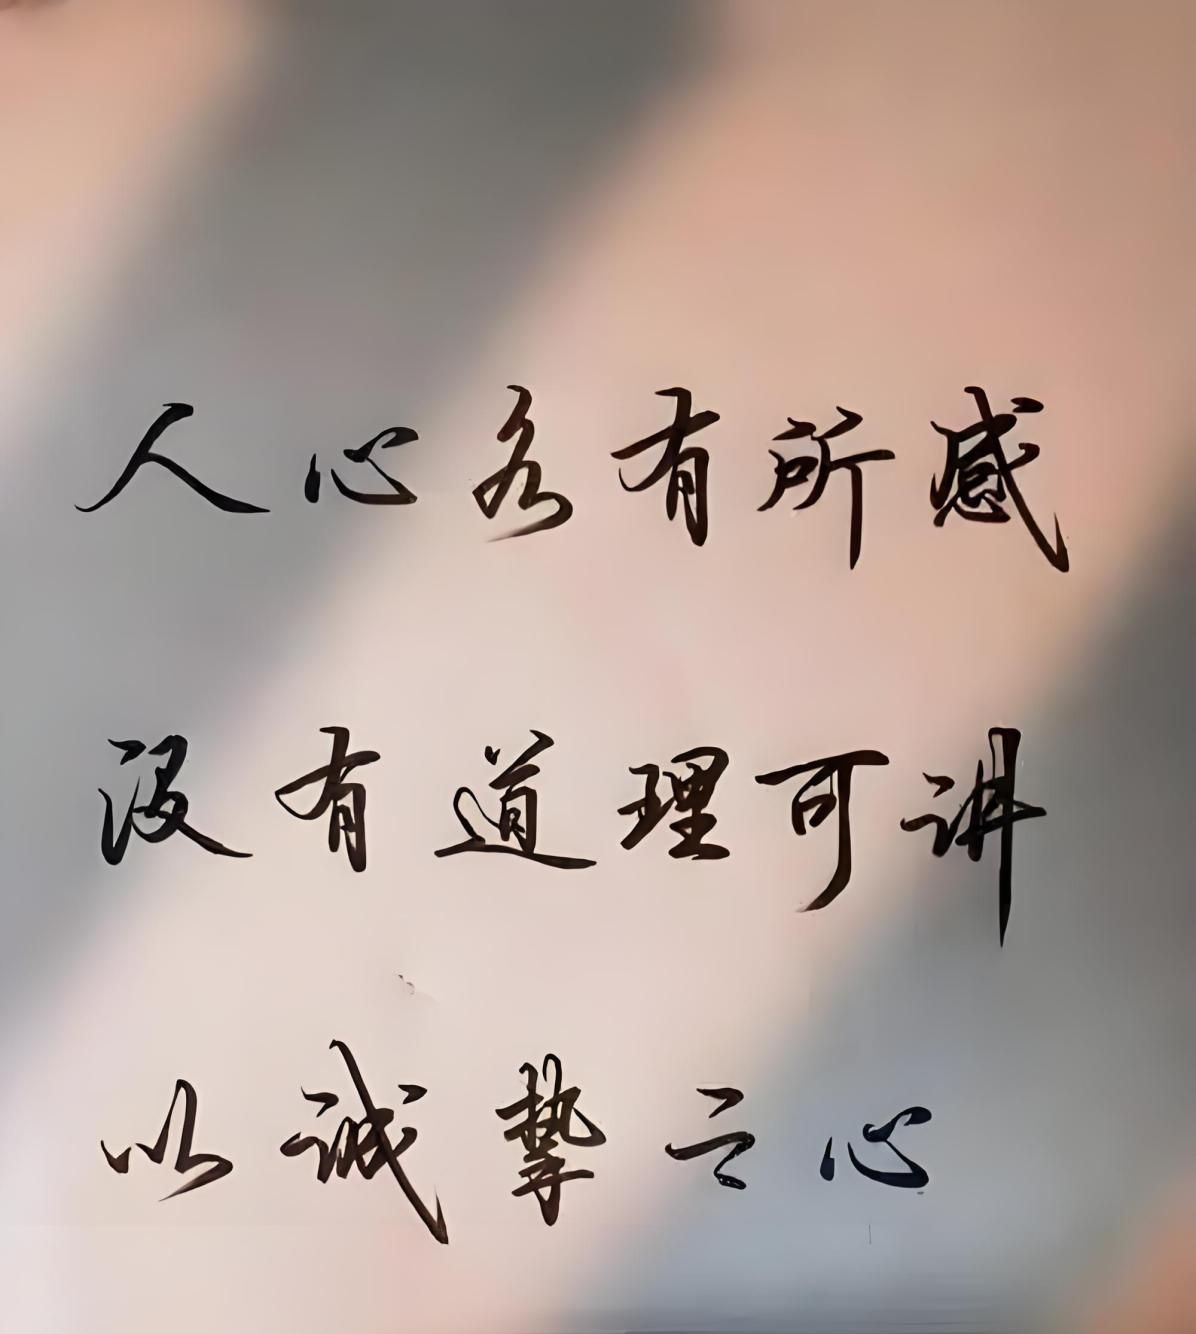 人心各有所感
没有道理可讲
以诚挚之心